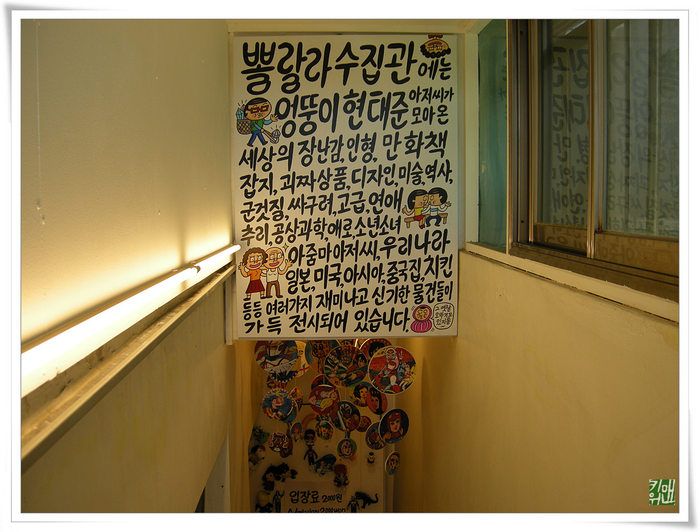 뽈랄라수집관에는
엉뚱이현태준 아저씨가 모아온
세상의 장난감, 인형, 만화책
잡지, 괴짜상품, 디자인, 미술, 역사,
군것질, 싸구려, 고급, 연애
추리, 공상과학, 에로, 소년소녀
아줌마아저씨, 우리나라
일본, 미국, 아시아, 중국집, 치킨
등등 여러가지 재미나고 신기한 물건들이
가득 전시되어 있습니다.
입장료 2000원